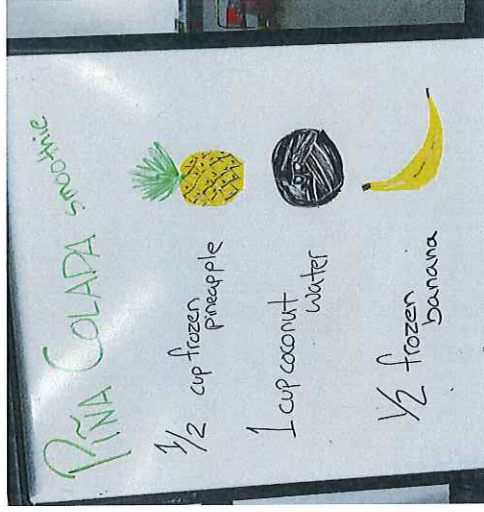 PIÑA COLADA smoothie
1/2 cup frozen
pineapple
1 cup coconut
water
1/2 frozen
banana